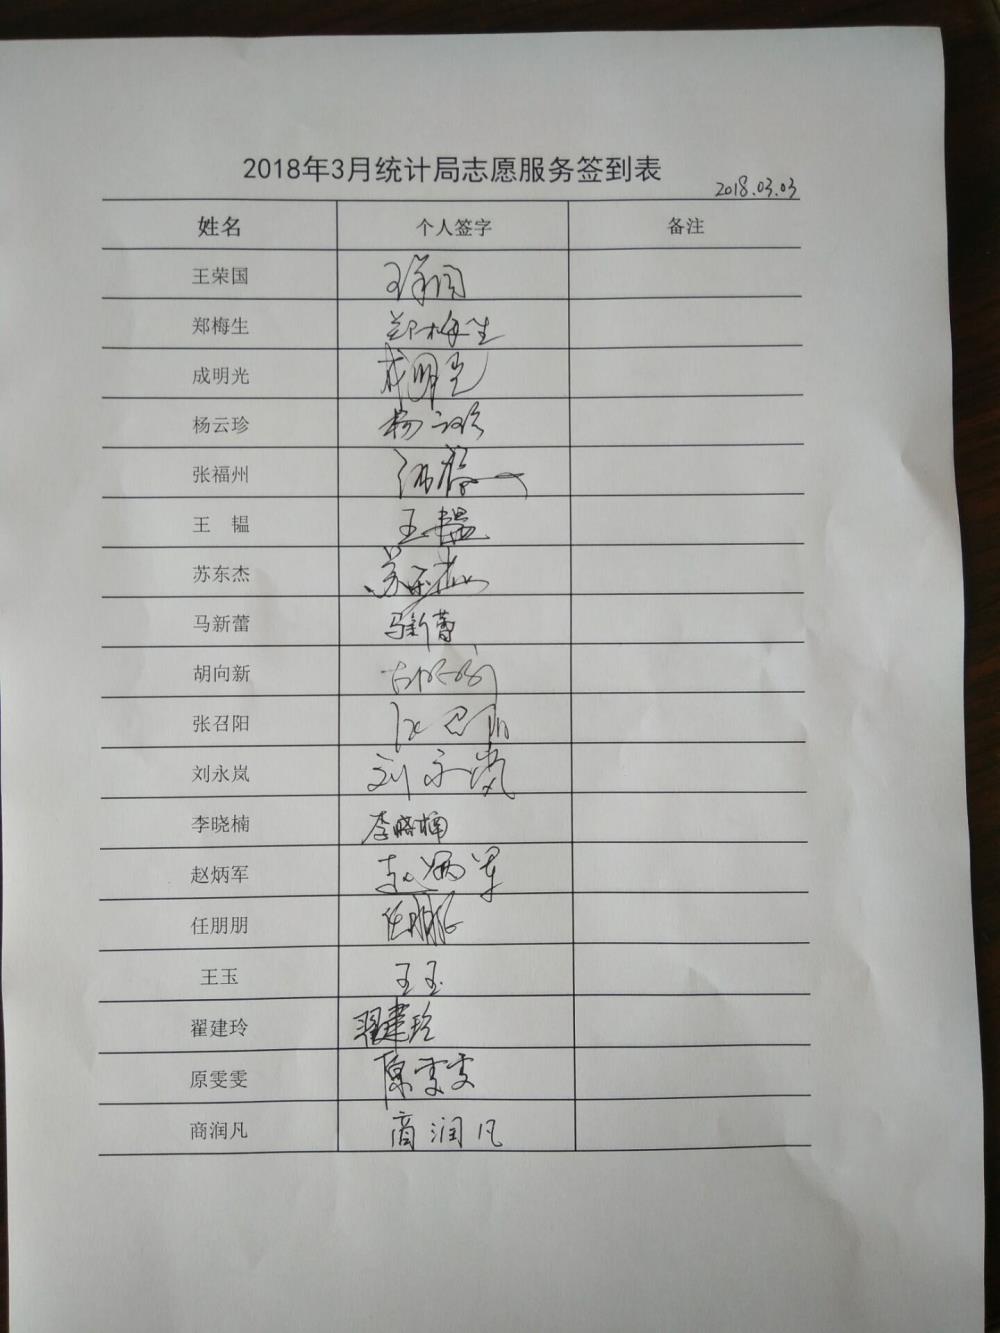 2018年3月统计局志愿服务签到表
2018.03.03
姓名 个人签字 备注
王荣国 王荣国
郑梅生 郑梅生
成明光 成明光
杨云珍 杨云珍
张福州
王 韫 王韫
苏东杰 苏东杰
马新蕾 马新蕾
胡向新
张召阳 张召阳
刘永岚 刘永岚
李晓楠 李晓楠
赵炳军 赵炳军
任朋朋 任朋朋
王玉 王玉
翟建玲 翟建玲
原雯雯 原雯雯
商润凡 商润凡